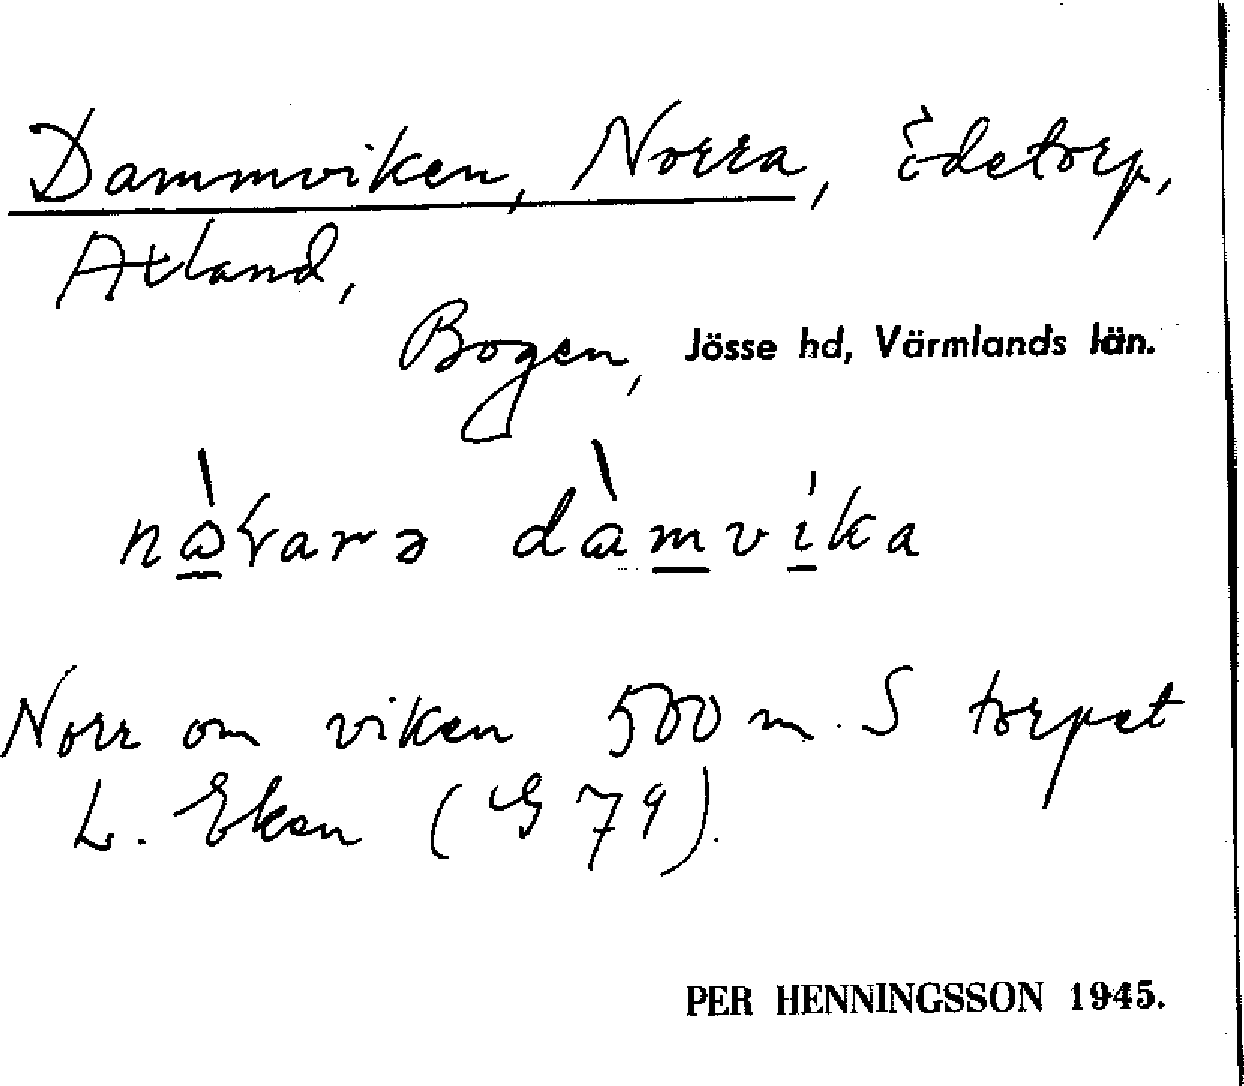 Dammviken, Norra, ödetorp,
Axland,
Bogen, Jösse hd, Värmlands län.
dàmvika
Norr om viken 500 m. S torpet
L. Eken (G 79).
PER HENNINGSSON 1945.